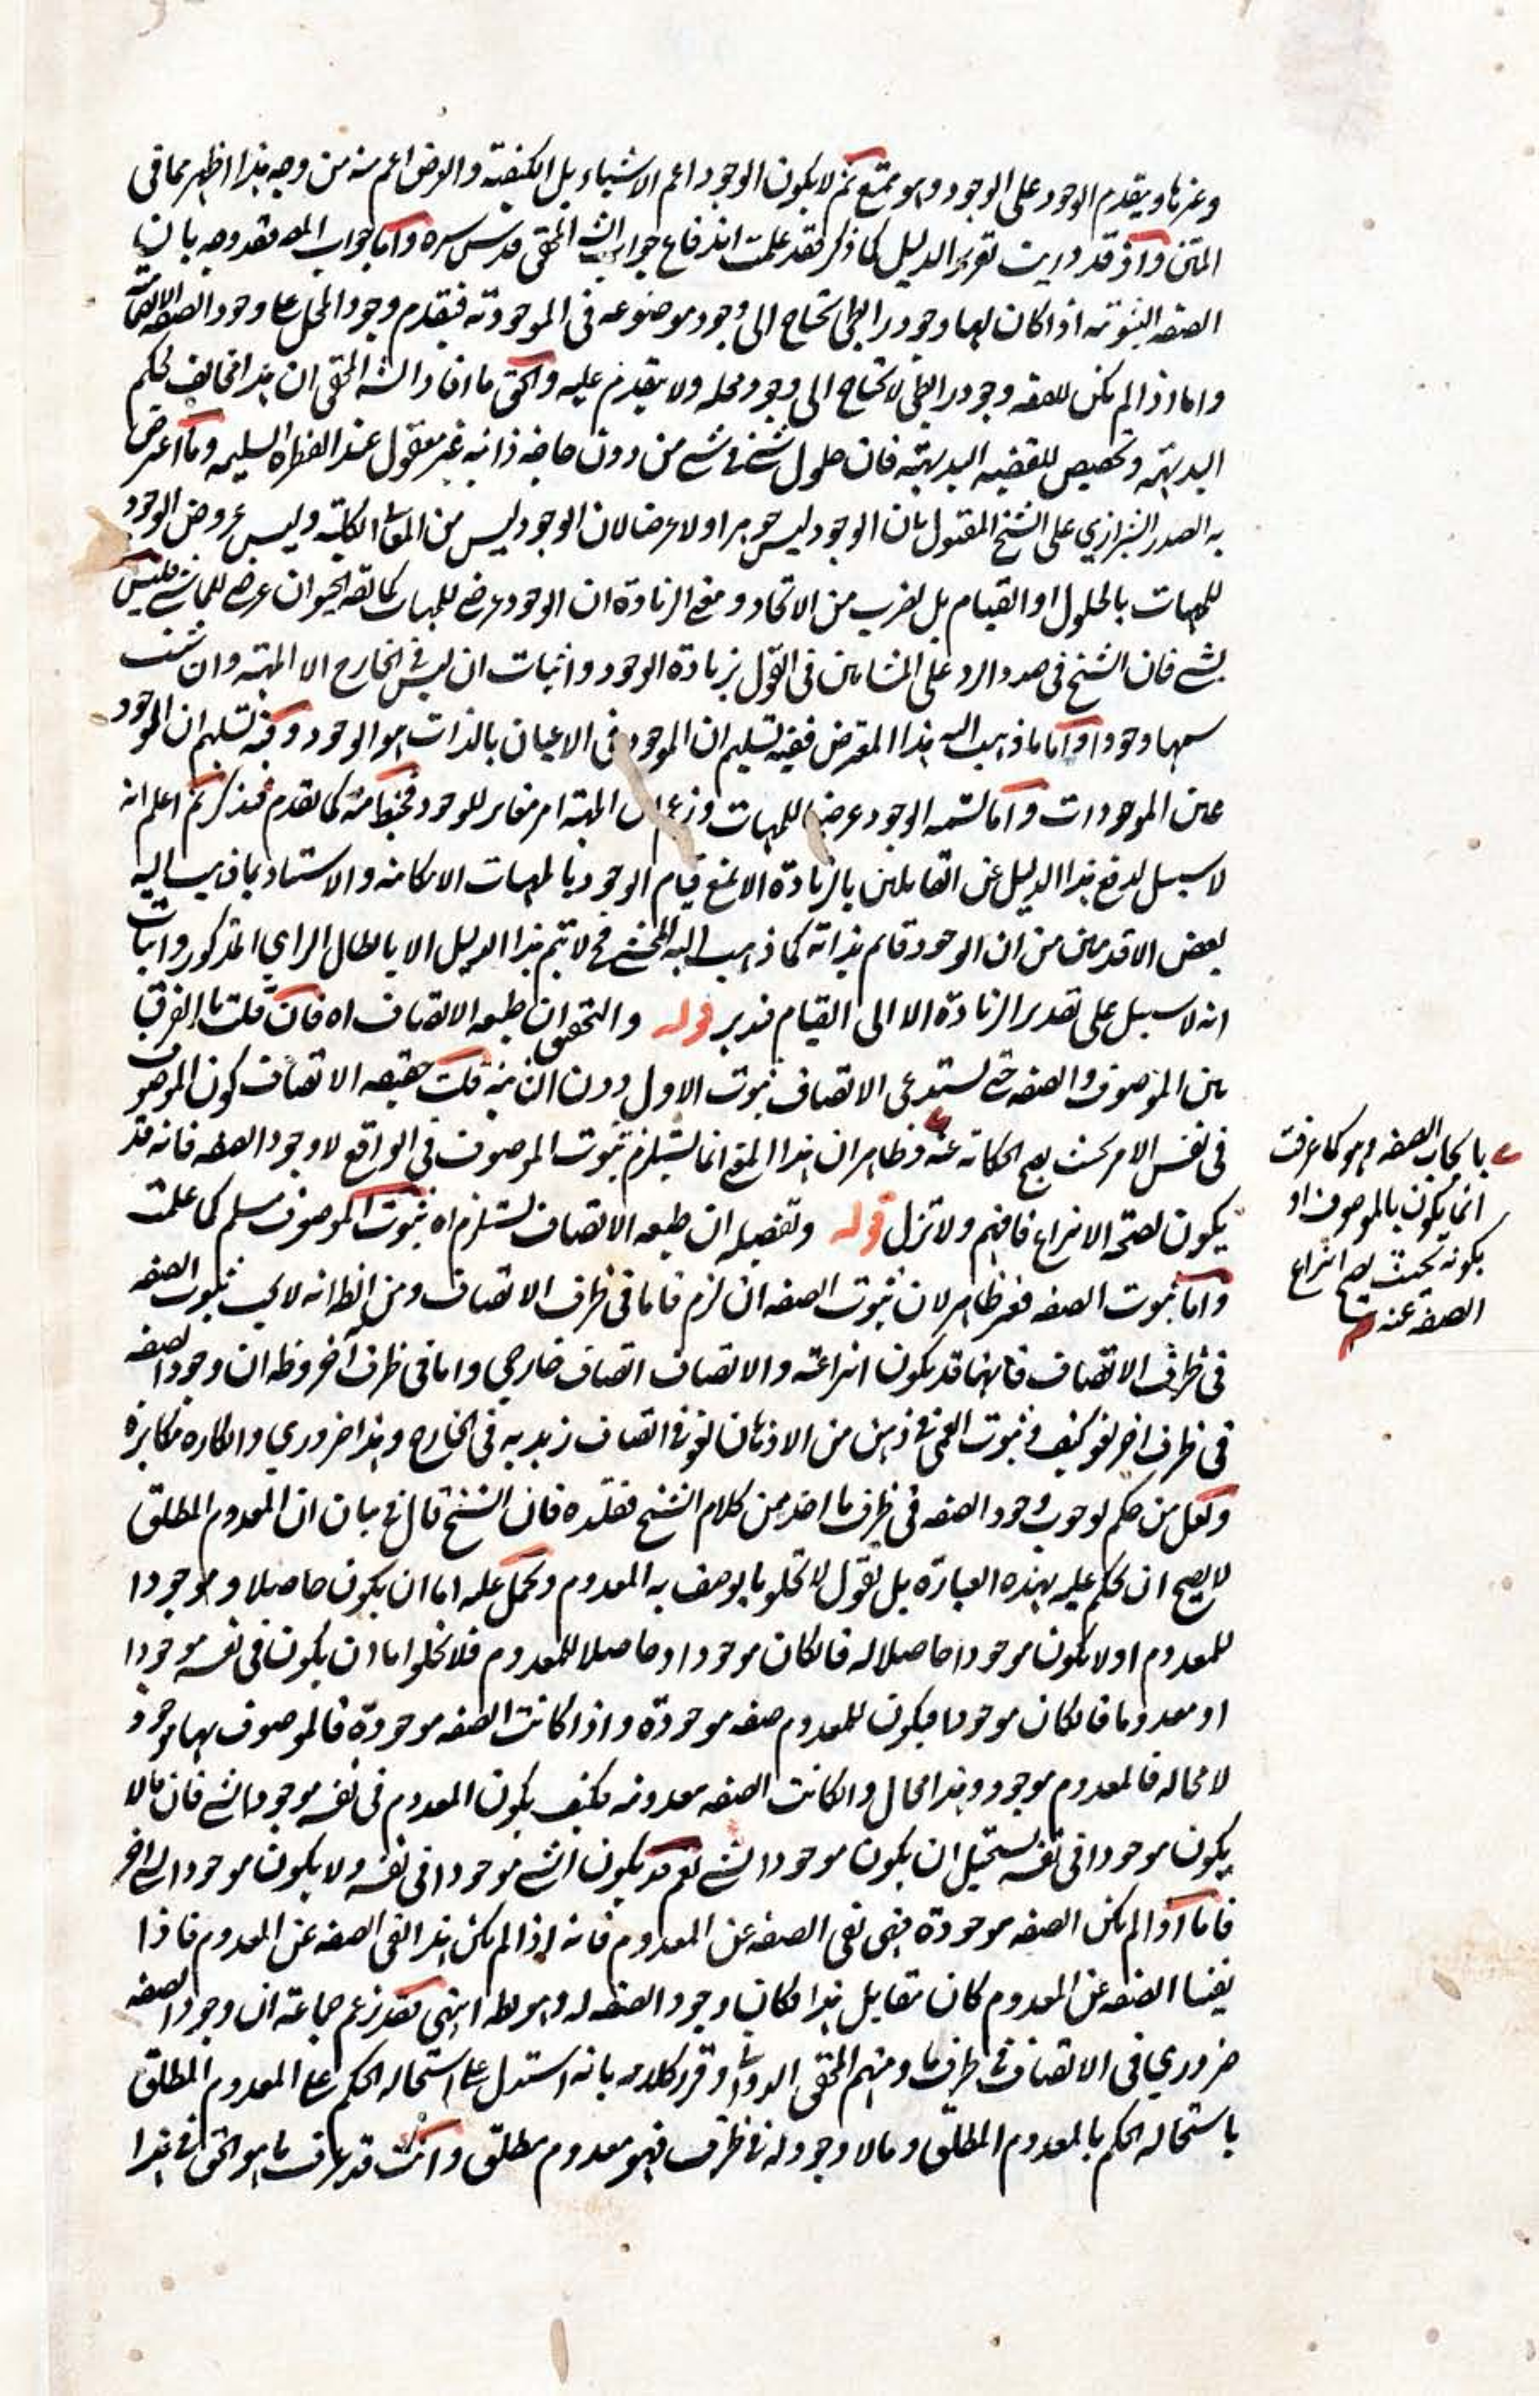 وغيرها ويقدم الوجود على الوجود وهو ممتنع ثم لا يكون الوجود اعم الاشياء بل الكيفية والعرض اعم منه من وجه هذا اظهر مما في
المتن واذ قد دريت تقرير الدليل كما ذكر فقد علمت اندفاع جواب الش المحقق قدس سره واما جواب المص فقد وجه بان
الصفه الثبوتيه اذا كان لها وجود رابطي تحتاج الى وجود موضوعه في الموجوديه فيقدم وجود المحل على وجود الصفه الانضماميه
واما اذا لم يكن للصفه وجود رابطي لا تحتاج الى وجود محله ولا يتقدم عليه والحق ما افاد الش المحقق ان هذا مخالف لحكم
البديهه وتخصيص للقضيه البديهيه فان حلول شئ في شئ من دون حاجه ذاتيه غير معقول عند الفطره السليمه وما اعترض
به الصدر الشيرازي على الشيخ المقتول بان الوجود ليس جوهرا ولا عرضا لان الوجود ليس من المعاني الكليه وليس عروض الوجود
للمهيات بالحلول او القيام بل لضرب من الاتحاد ومعنى الزيادة ان الوجود عرضي للمهيات كما انه الحيوان عرضي للماشي فليس
بشئ فان الشيخ في صدد الرد على المشائين في القول بزيادة الوجود واثبات ان ليس في الخارج الا المهيه وان شئت
سمها وجودا واما ما ذهب اليه هذا المعترض ففيه تسليم ان الموجود في الاعيان بالذات هو الوجود وفيه تسليم ان الوجود
عين الموجودات واما تسميه الوجود عرضيا للمهيات وزعم ان المهيه امر مغاير للوجود فخبط منه كما تقدم فتذكر ثم اعلم انه
لا سبيل لدفع هذا الدليل عن القايلين بالزيادة الا لمنع قيام الوجود بالمهيات الامكانيه والاستناد بما ذهب اليه
بعض الاقدمين من ان الوجود قايم بذاته كما ذهب اليه المحشي فح لا يتم هذا الدليل الا بابطال الراي المذكور واثبات
انه لا سبيل على تقدير الزيادة الا الى القيام فتدبر قوله والتحقيق ان طبيعه الاتصاف اه فان قلت ما الفرق
بين الموصوف والصفه حتى يستدعي الاتصاف ثبوت الاول دون الثانيه قلت حقيقه الاتصاف كون الموصوف
في نفس الامر بحيث يصح الحكايه عنه وظاهر ان هذا المعنى انما يستلزم ثبوت الموصوف في الواقع لا وجود الصفه فانه قد
يكون لصحه الانتزاع فافهم ولا تزل قوله وتفصيله ان طبيعه الاتصاف يستلزم اه ثبوت الموصوف مسلم كما علمت
واما ثبوت الصفه فغير ظاهر لان ثبوت الصفه ان لزم فاما في ظرف الاتصاف ومن الظ انه لا يجب ثبوت الصفه
في ظرف الاتصاف فانها قد يكون انتزاعيه والاتصاف اتصاف خارجي واما في ظرف آخر وظ ان وجود الصفه
في ظرف اخر لغو كيف وثبوت العمى في ذهن من الاذهان لغو في اتصاف زيد به في الخارج وهذا ضروري وانكاره مكابرة
ولعل من حكم لوجوب وجود الصفه في ظرف ما اخذ من كلام الشيخ فقلده فان الشيخ قال في بيان ان المعدوم المطلق
لا يصح ان يحكم عليه بهذه العبارة بل نقول لا تخلو ما يوصف به المعدوم ويحمل عليه اما ان يكون حاصلا وموجودا
للمعدوم او لا يكون موجودا حاصلا له فان كان موجودا وحاصلا للمعدوم فلا يخلو اما ان يكون في نفسه موجودا
او معدوما فان كان موجودا فيكون للمعدوم صفه موجودة واذا كانت الصفه موجودة فالموصوف بها موجود
لا محاله فالمعدوم موجود وهذا محال وان كانت الصفه معدومه فكيف يكون المعدوم في نفسه موجودا لشئ فان ما لا
يكون موجودا في نفسه يستحيل ان يكون موجودا لشئ نعم قد يكون الشئ موجودا في نفسه ولا يكون موجودا لشئ اخر
فاما اذا لم يكن الصفه موجودة فهى نفى الصفه عن المعدوم فانه اذا لم يكن هذا نفى الصفه عن المعدوم فاذا
نفينا الصفه عن المعدوم كان مقابل هذا فكان وجود الصفه له وهو بط انتهى فقد زعم جماعة ان وجود الصفه
ضروري في الاتصاف في ظرف ما ومنهم المحقق الدواني وقرر كلامه بانه استدل على استحاله الحكم على المعدوم المطلق
باستحاله الحكم بالمعدوم المطلق وما لا وجود له في ظرف فهو معدوم مطلق وانت قد عرفت ما هو الحق في هذا
بايجاب الصفه وهو كما عرفت
انما يكون بالموصوف او
بكونه بحيث يصح انتزاع
الصفه عنه